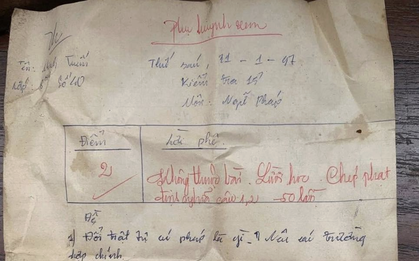 Phụ huynh xem
Tên: Tuấn
Thứ sáu, 31 - 1 - 97
Lớp
Kiểm tra 15'
Môn: Ngữ Pháp
Điểm
Lời phê
2
Không thuộc bài. Lười học. Chép phạt
định nghĩa câu 1, 2 50 lần
Đề
1) Đổi trật tự cú pháp là gì. Nêu các trường
hợp chính